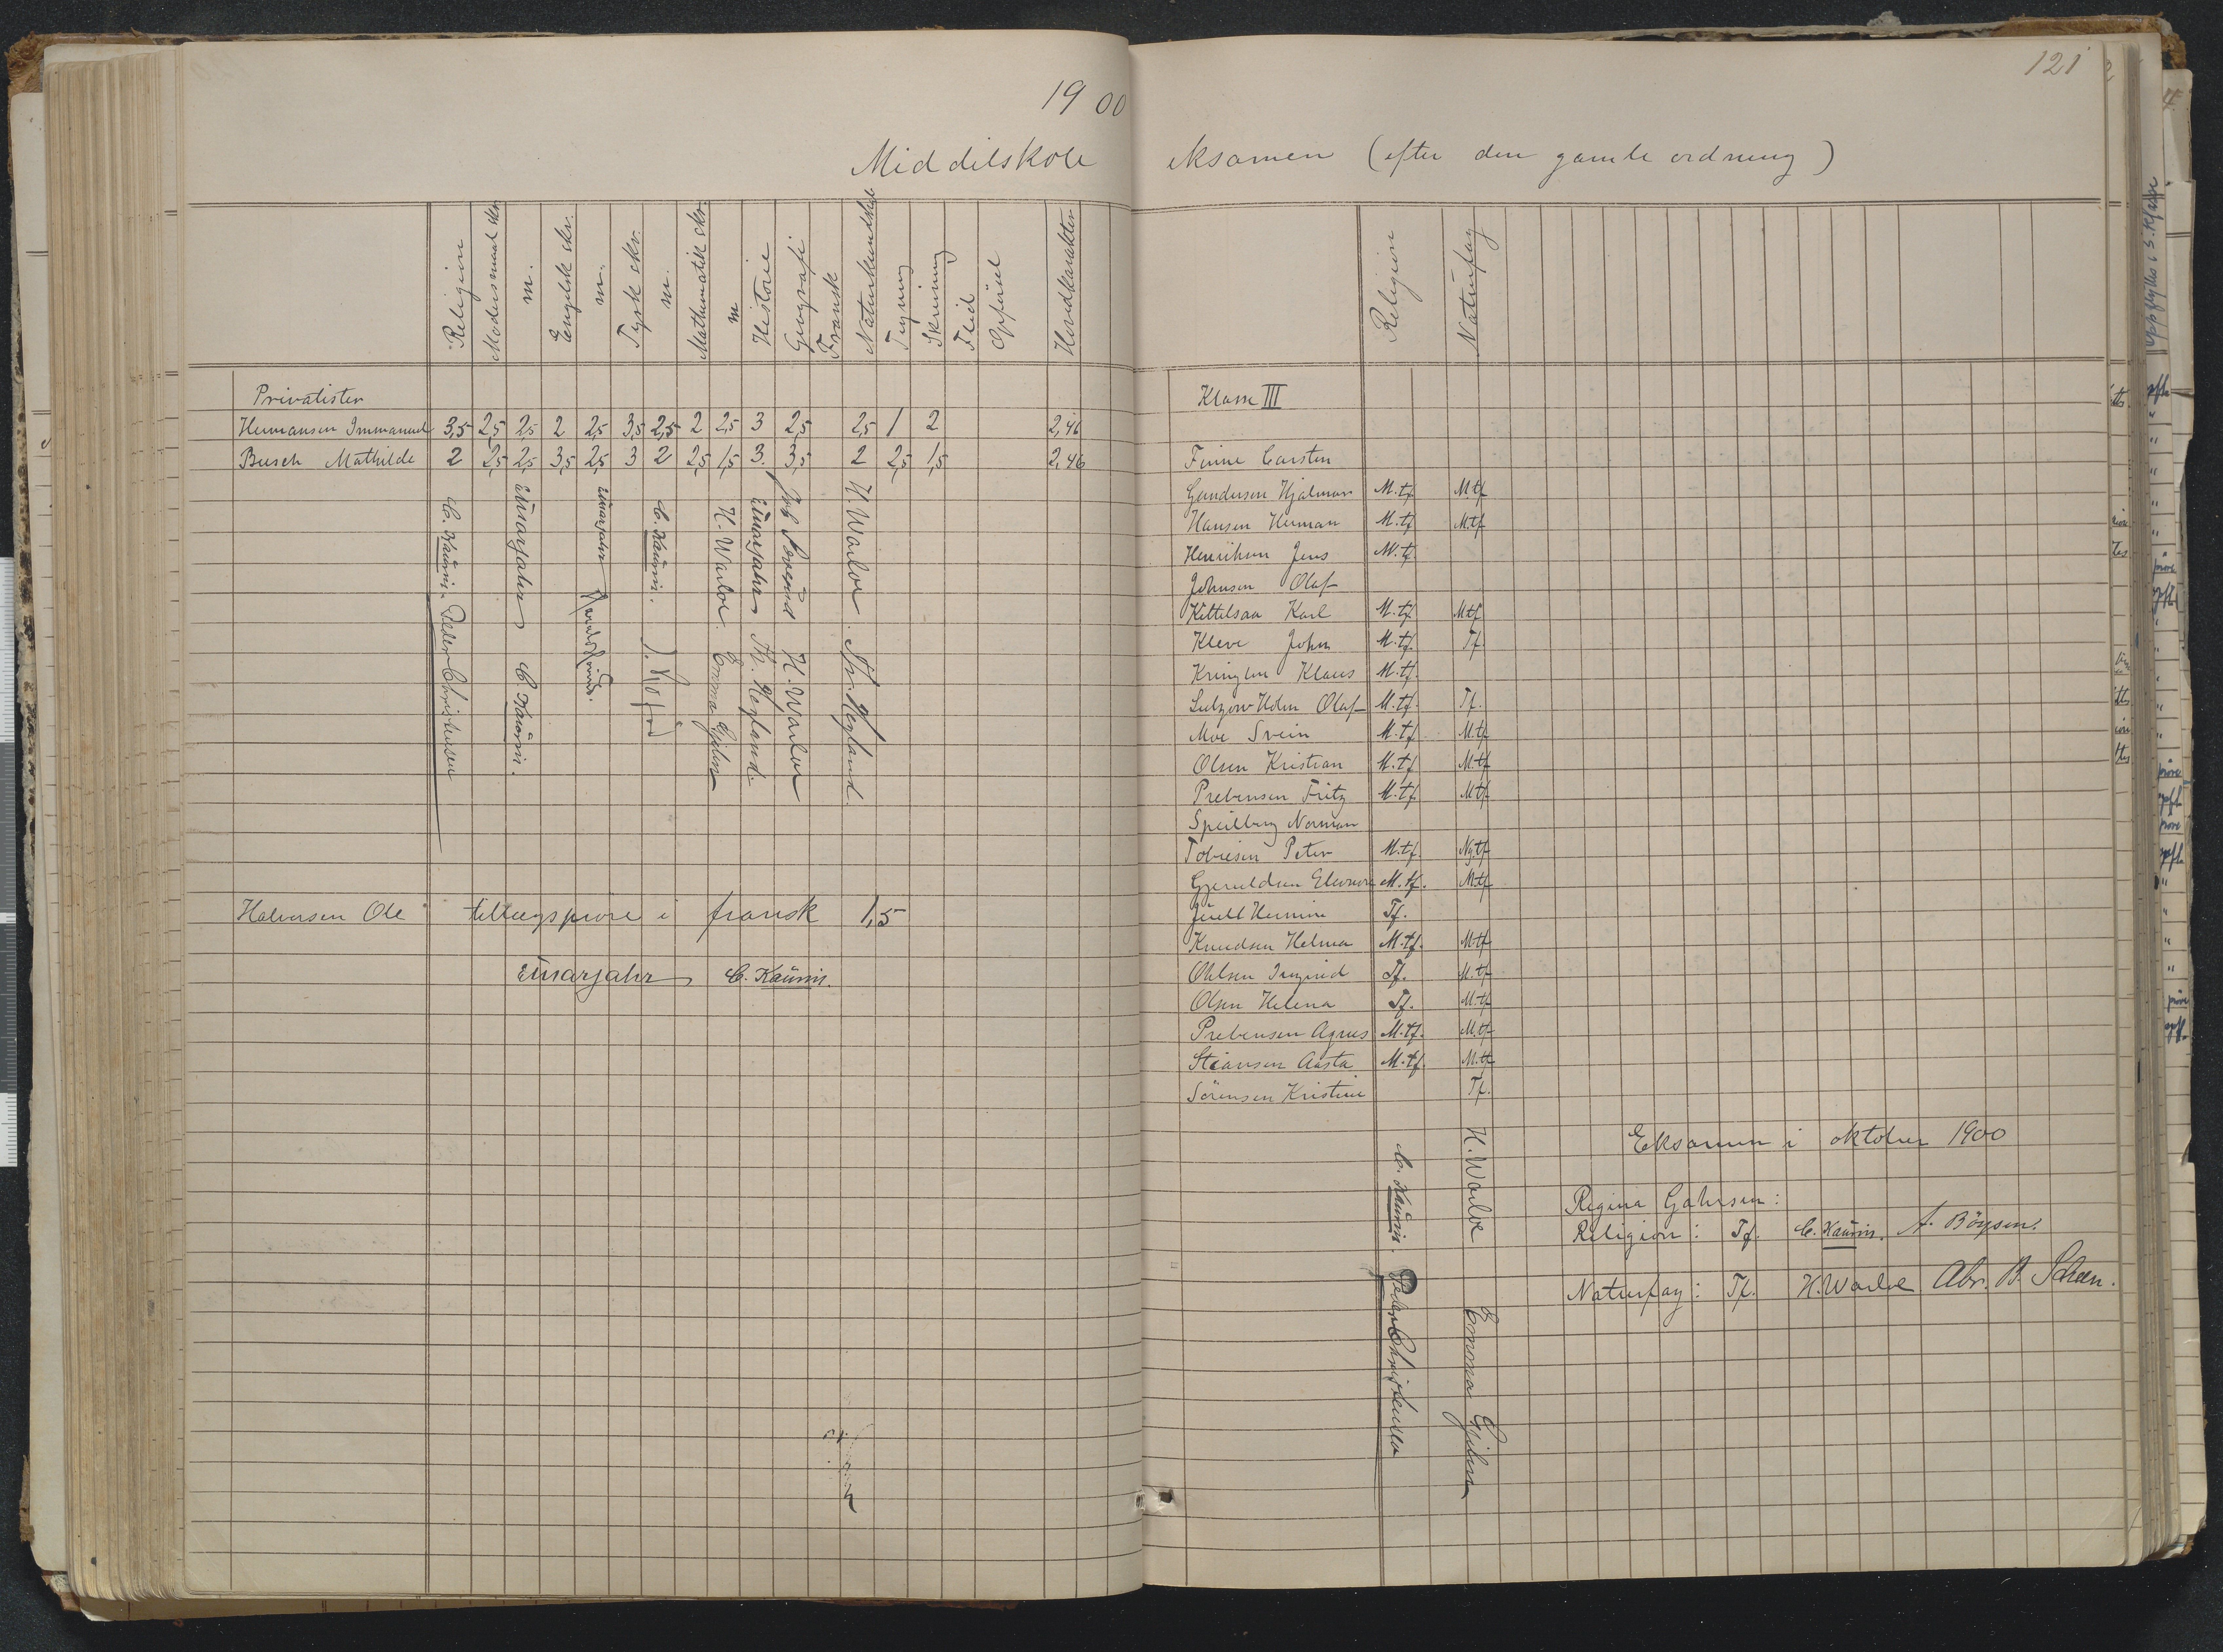 1900
121
Middelskole eksamen (efter den gamle ordning)
Religion Modersmaal skr. m. Engelsk skr. m. Tysk skr. m. Mathematik skr. m Historie Geografi Fransk Naturkundskab Tegning Skrivning Flid Opførsel Hovedkarakter
Privatister
Hermansen Immanuel 3,5 2,5 2,5 2 2,5 3,5 2,5 2 2,5 3 2,5 2,5 1 2 2,46
Busch Mathilde 2 2,5 2,5 3,5 2,5 3 2 2,5 1,5 3. 3,5 2 2,5 1,5 2,46
C. Kaurin. Peder Christensen
Einarjahr C. Kaurin.
Einarjahr
C. Kaurin.
H. Warloe. Emma Gjihn
Einarjahr Th. Hegland.
H. Warloe
H. Warloe. Th. Hegland.
Halvorsen Ole tillægsprøve i fransk 1,5
Einarjahr C. Kaurin.
Religion Naturfag
Klasse III
Finne Carsten
Gundersen Hjalmar M.tf. M.tf
Hansen Herman M.tf M.tf
Henriksen Jens M.tf
Johnsen Olaf
Kittelsaa Karl M.tf. M.tf
Kleve John M.tf. Tf.
Kringlen Klaus M.tf.
Lutzow-Holm Olaf M.tf. Tf.
Moe Svein M.tf M.tf
Olsen Kristian M.tf M.tf
Prebensen Fritz M.tf. M.tf
Speilberg Norman
Tobiesen Peter M.tf. Ng.tf
Gjeruldsen Eleonore M.tf. M.tf
Hermine Tf.
Knudsen Helma M.tf. M.tf
Ohlsen Ingrid Tf. M.tf
Olsen Helena Tf. M.tf
Prebensen Agnes M.tf. M.tf
Stiansen Aasta M.tf. M.tf
Sörensen Kristine Tf.
C. Kaurin. Peder Christensen
H. Warloe Emma Gjihn
Eksamen i oktober 1900
Regina Gahrsen:
Religion: Tf. C. Kaurin. A. Böysen.
Naturfag: Tf. H. Warloe Abr. B. Scheen.